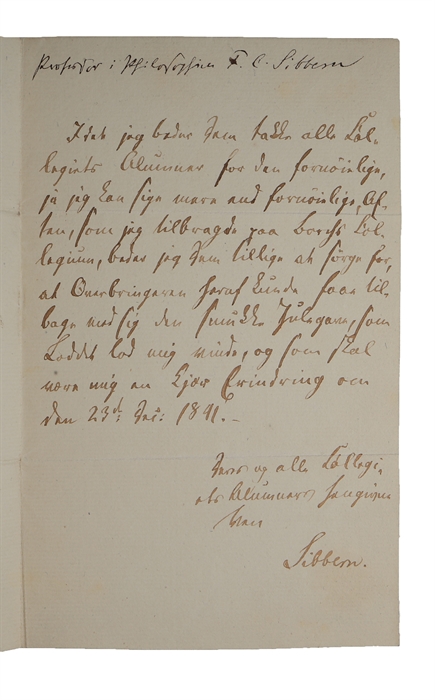 Professor i Philosophien F. C. Sibbern
Idet jeg beder Dem takke alle Col-
legiets Alumner for den fornöielige,
ja jeg kan sige mere end fornöielige, Af-
ten, som jeg tilbragde paa Borchs Col-
legium, beder jeg Dem tillige at sörge for,
at Overbringeren heraf kunde faae til-
bage med sig den smukke Julegave, som
Loddet lod mig vinde, og som skal
være mig en kjær Erindring om
den 23d: Dec: 1841. –
Deres og alle Collegi-
ets Alumners hengivne
Ven
Sibbern.